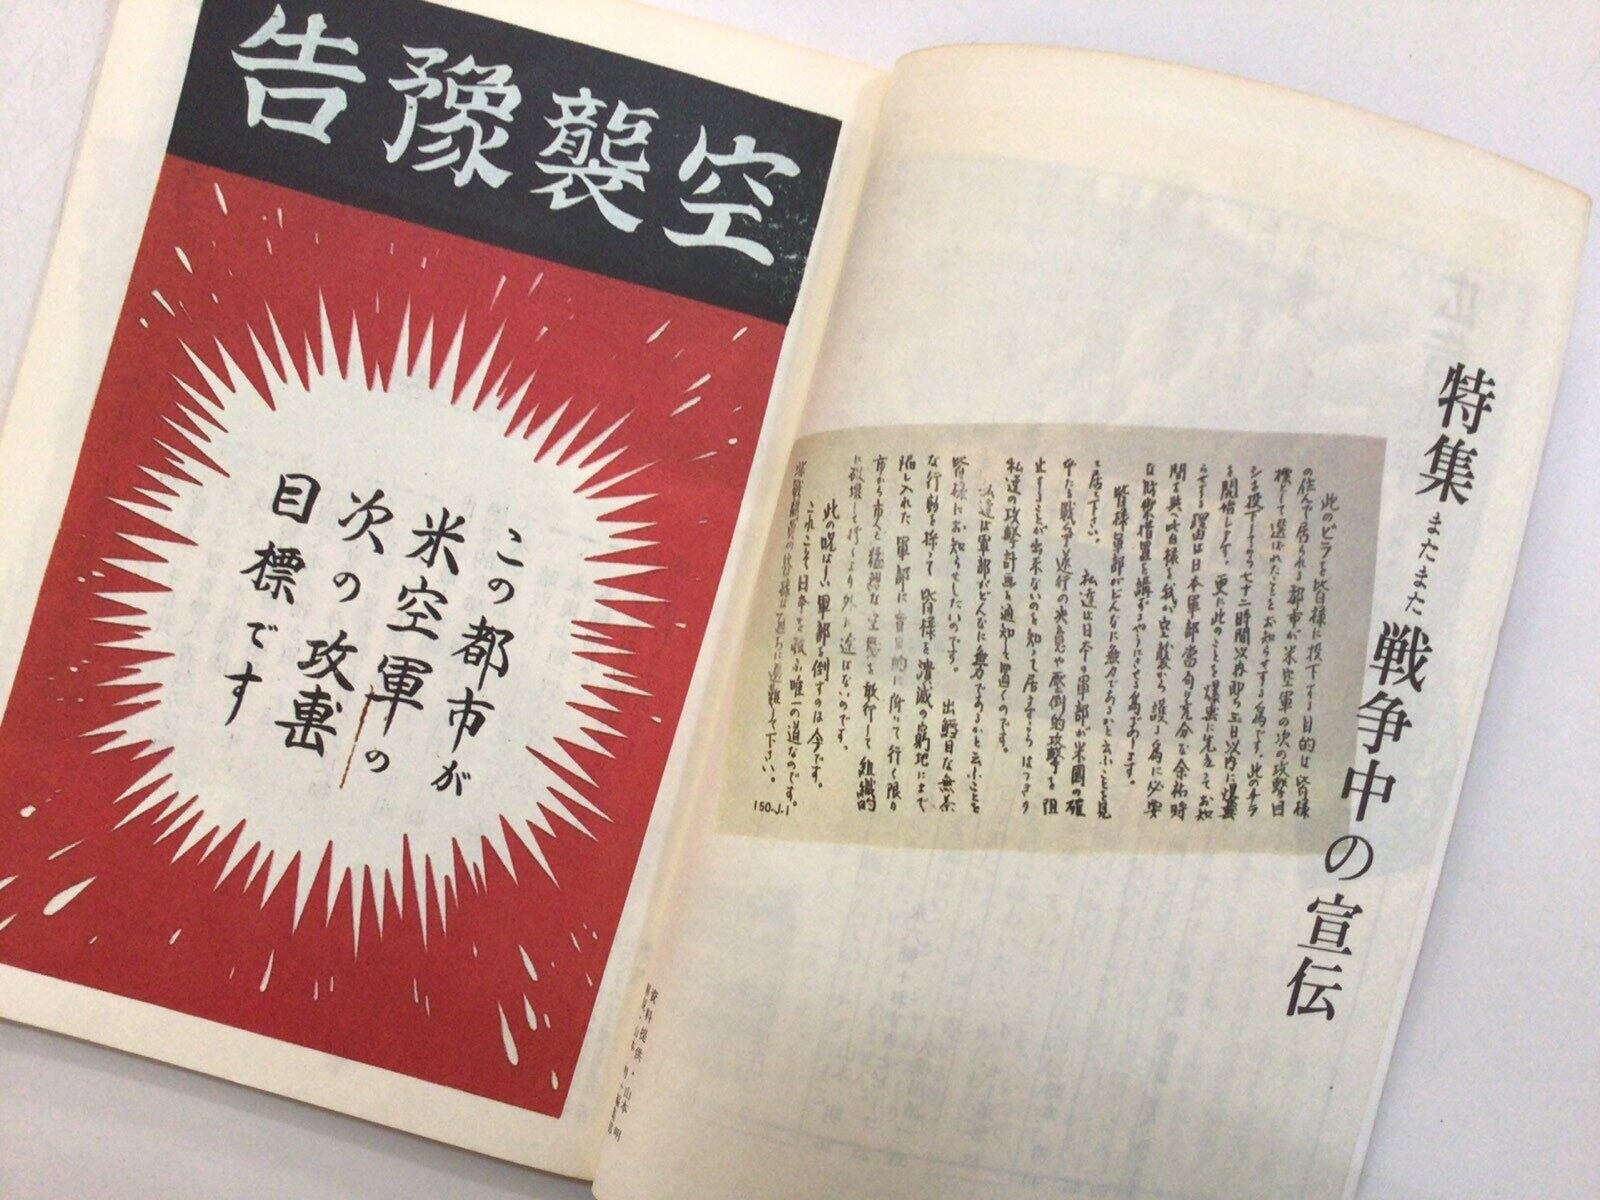 空襲豫告
この都市が
米空軍の
次の攻撃
目標です
特集 またまた 戦争中の宣伝
此のビラを皆様に投下する目的は皆様
の住んで居られる都市が米空軍の次の攻撃目
標として選ばれたことをお知らせする為です。此のチラ
シを投下してから七十二時間以内即ち三日以内に爆撃
を開始します。更に此のことを爆撃に先立ってお知
らせする理由は日本軍部当局に充分な余裕時
間を与へ皆様を我が空襲から護る為に必要
な防禦措置を講がるやうにさせる為であります。
皆様軍部がどんなに無力であるかと云ふことを見
て居て下さい。私達は日本の軍部が米国の確
乎たる戦争遂行の決意や圧倒的攻撃を阻
止することが出来ないのを知って居ますからはっきり
私達の攻撃計画を通知して置くのです。
私達は軍部がどんなに無力であるかと云ふことを
皆様にお知らせしたいのです。出鱈目な無茶
な行動を採って皆様を潰滅の窮地にまで
陥し入れた軍部に盲目的に附いて行く限り
市から市へと猛烈な空襲を敢行して組織的
に破壊して行くより外に途はないのです。
此の呪はしい軍部を倒すのは今です。
これこそ日本を救ふ唯一の道なのです。
非戦闘員の皆様は直ちに避難して下さい。
150-J-1
資料提供・山本 明